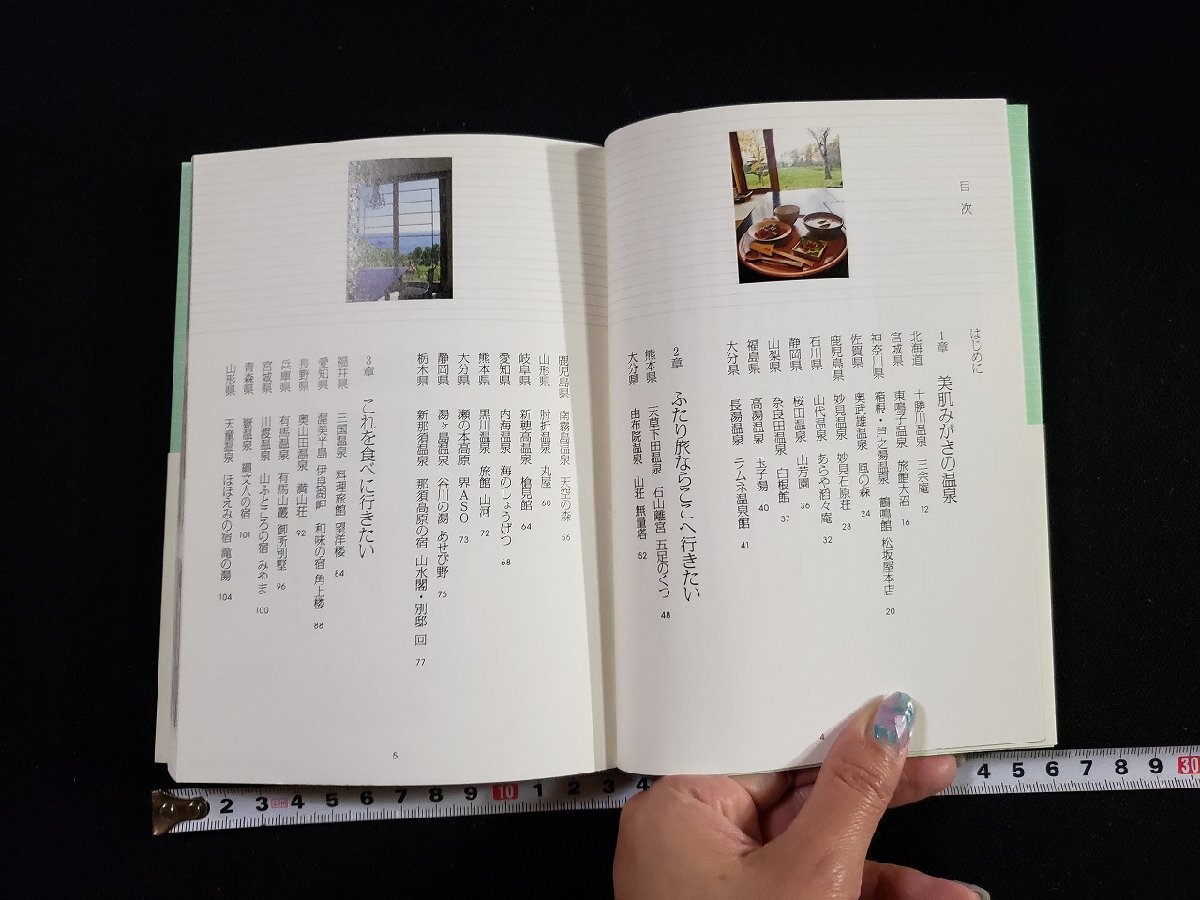 目次
はじめに
1章 美肌みがきの温泉
北海道 十勝川温泉 三余庵 12
宮城県 東鳴子温泉 旅館大沼 16
神奈川県 箱根・芦之湯温泉 鶴鳴館 松坂屋本店 20
佐賀県 奥武雄温泉 風の森 24
鹿児島県 妙見温泉 妙見石原荘 28
石川県 山代温泉 あらや滔々庵 32
静岡県 桜田温泉 山芳園 36
山梨県 奈良田温泉 白根館 37
福島県 高湯温泉 玉子湯 40
大分県 長湯温泉 ラムネ温泉館 41
2章 ふたり旅ならここへ行きたい
熊本県 天草下田温泉 石山離宮 五足のくつ 48
大分県 由布院温泉 山荘 無量塔 52
4
鹿児島県 南霧島温泉 天空の森 56
山形県 肘折温泉 丸屋 60
岐阜県 新穂高温泉 槍見館 64
愛知県 内海温泉 海のしょうげつ 68
熊本県 黒川温泉 旅館 山河 72
大分県 瀬の本高原 界ASO 73
静岡県 湯ヶ島温泉 谷川の湯 あせび野 76
栃木県 新那須温泉 那須高原の宿 山水閣・別邸 回 77
3章 これを食べに行きたい
福井県 三国温泉 料理旅館 望洋楼 84
愛知県 渥美半島 伊良湖岬 和味の宿 角上楼 88
長野県 奥山田温泉 満山荘 92
兵庫県 有馬温泉 有馬山叢 御所別墅 96
宮城県 川渡温泉 山ふところの宿 みやま 100
青森県 嶽温泉 縄文人の宿 101
山形県 天童温泉 ほほえみの宿 滝の湯 104
5
2 3 4 5 6 7 8 9 10 1 2 3 4
4 5 6 7 8 9 30